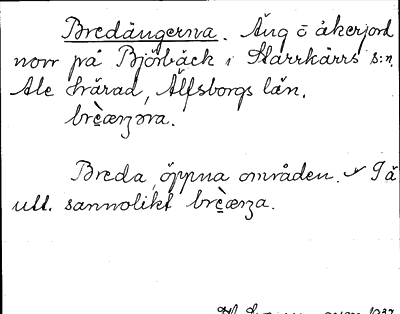 Bredängerna. Äng o åkerjord
norr på Björbäck i Starrkärrs s:n,
Ale härad, Älfsborgs län.
Breda, öppna områden.
utt. sannolikt